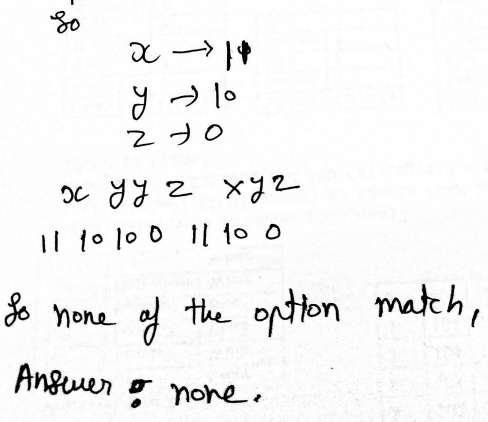 So
x → 11
y → 10
z → 0
x y y z x y z
11 10 10 0 11 10 0
So none of the option match,
Answer : none.